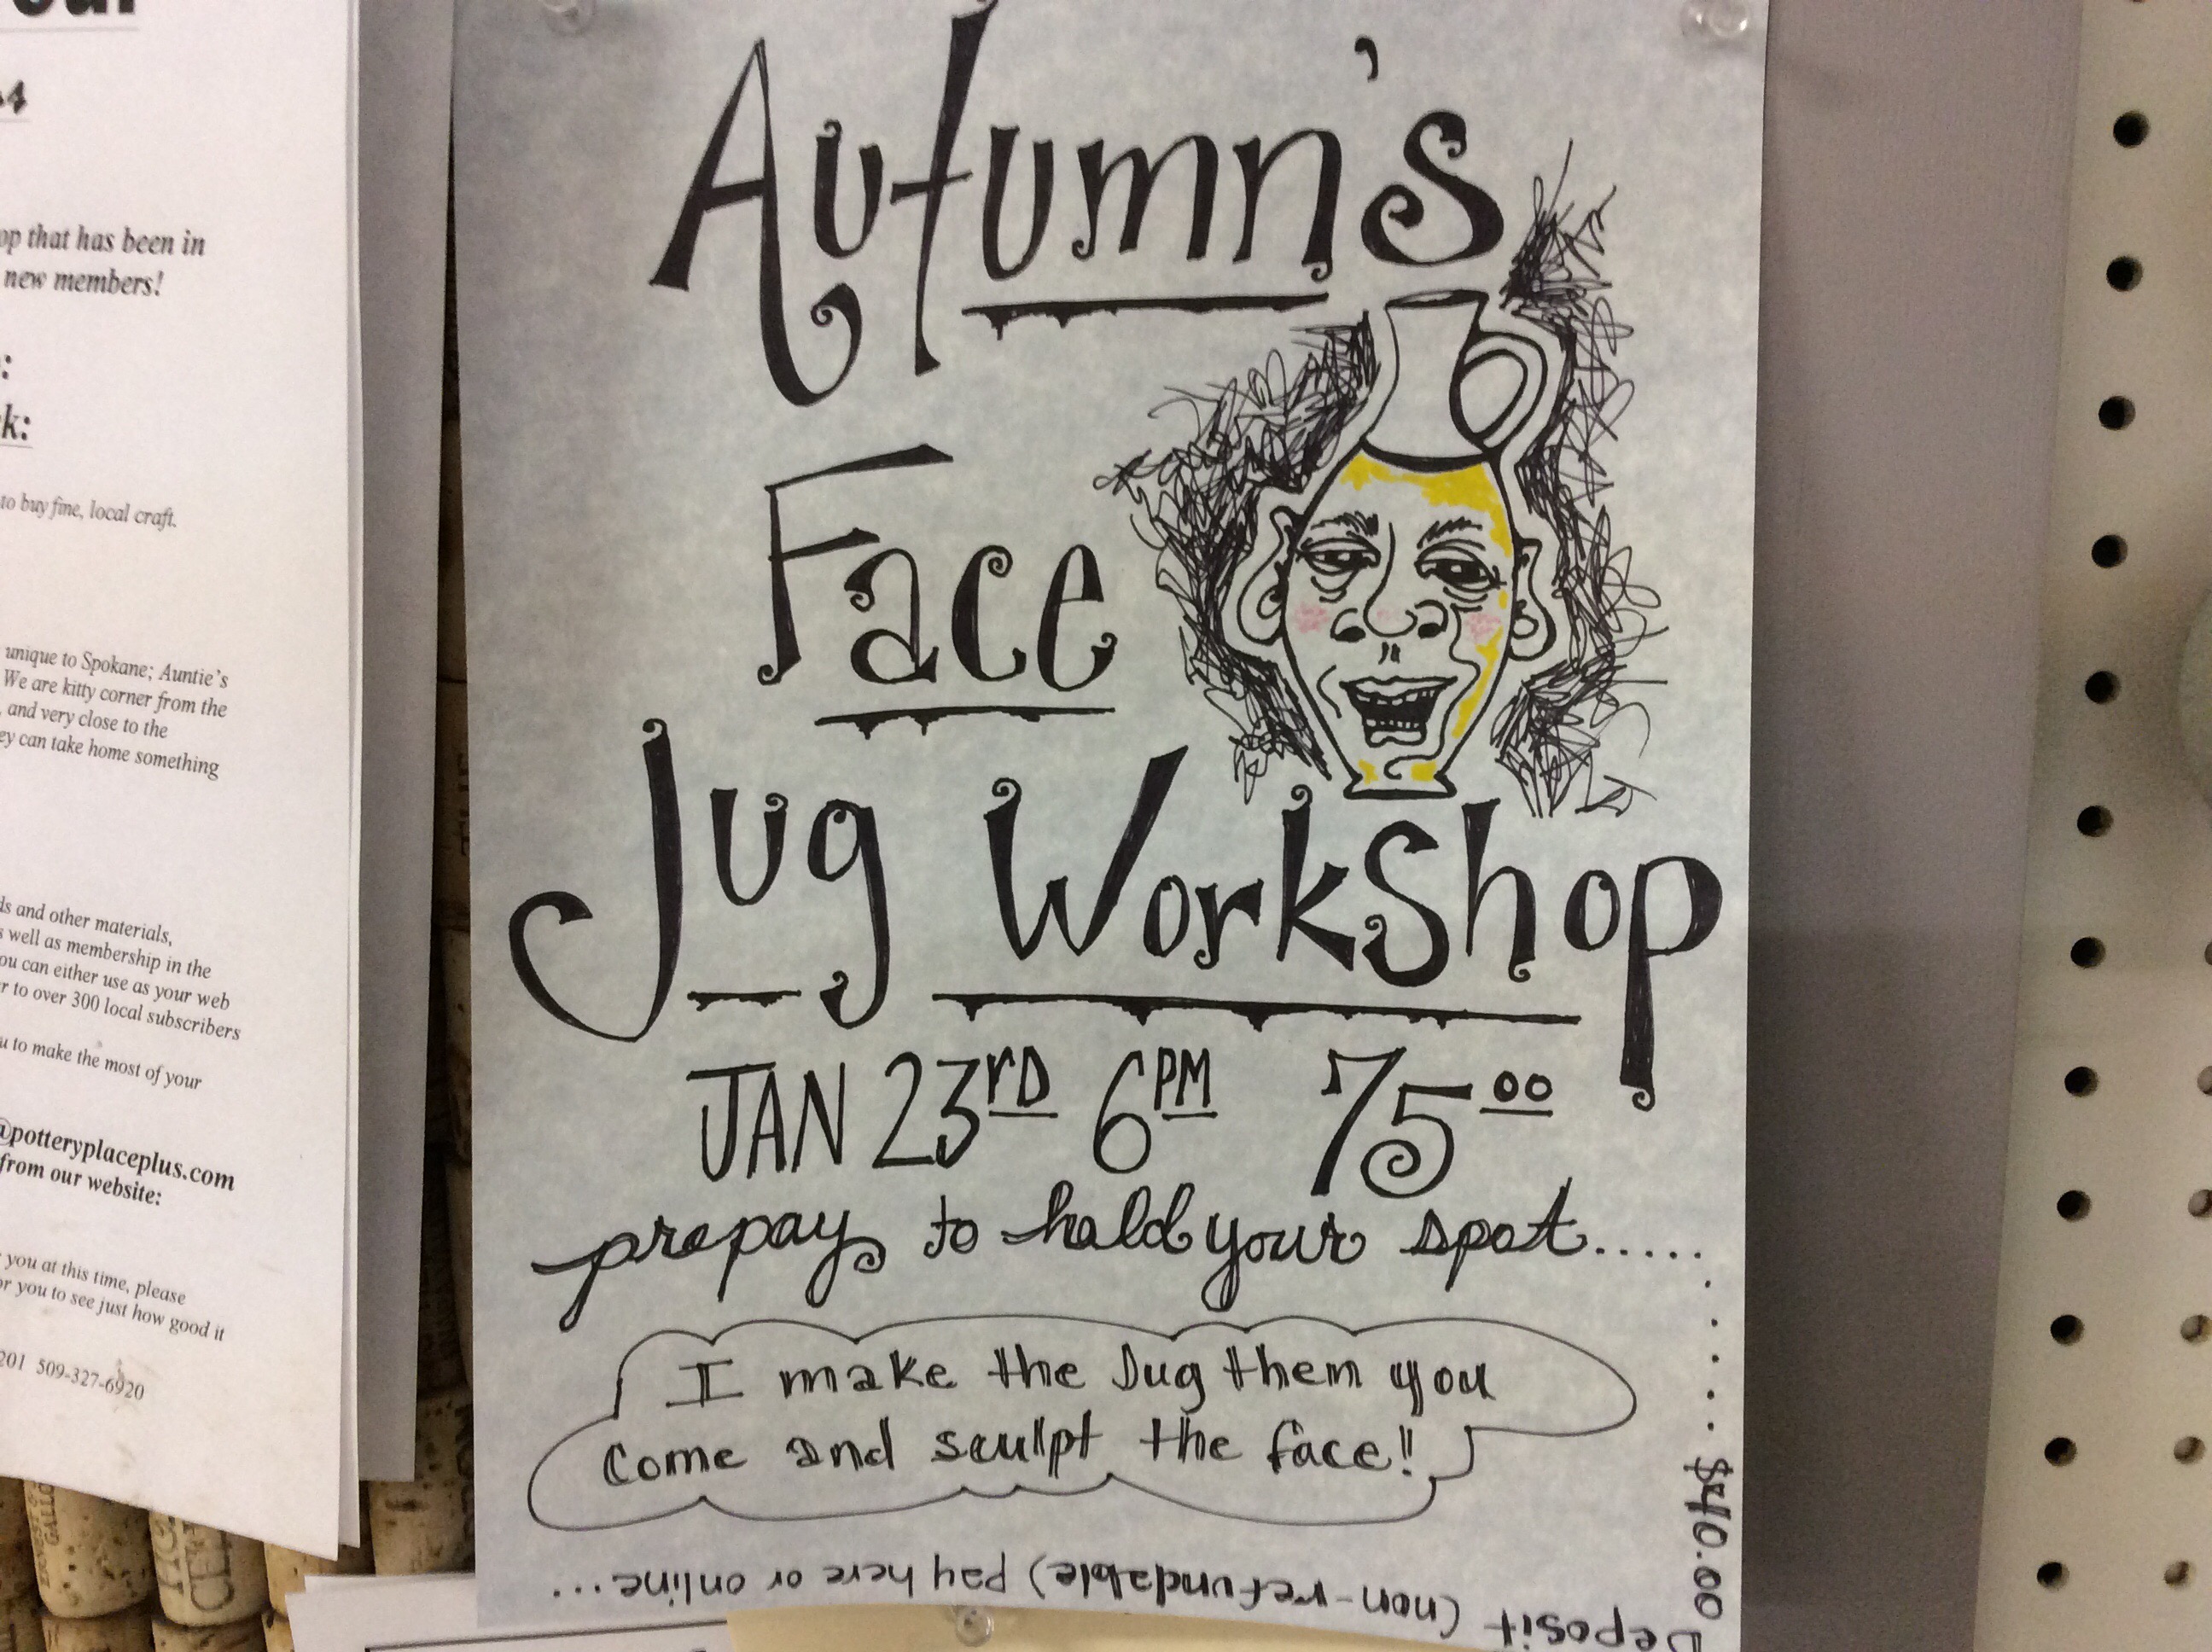 op that has been in
new members!
k:
to buy fine, local craft.
unique to Spokane; Auntie's
We are kitty corner from the
, and very close to the
ey can take home something
ds and other materials,
s well as membership in the
ou can either use as your web
r to over 300 local subscribers
u to make the most of your
@potteryplaceplus.com
from our website:
you at this time, please
or you to see just how good it
201 509-327-6920
Autumn's
Face
Jug Workshop
JAN 23rD 6PM 75 00
prepay to hold your spot.....
......$40.00
Deposit (non-refundable) pay here or online...
I make the Jug them you
come and sculpt the face!!